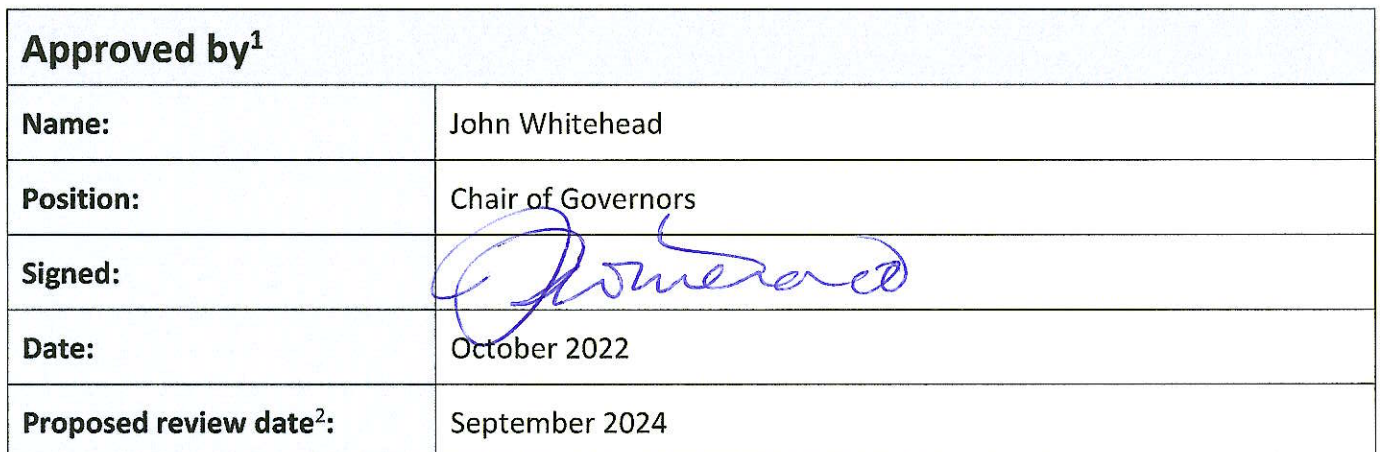 Approved by¹
Name: John Whitehead
Position: Chair of Governors
Signed:
Date: October 2022
Proposed review date²: September 2024